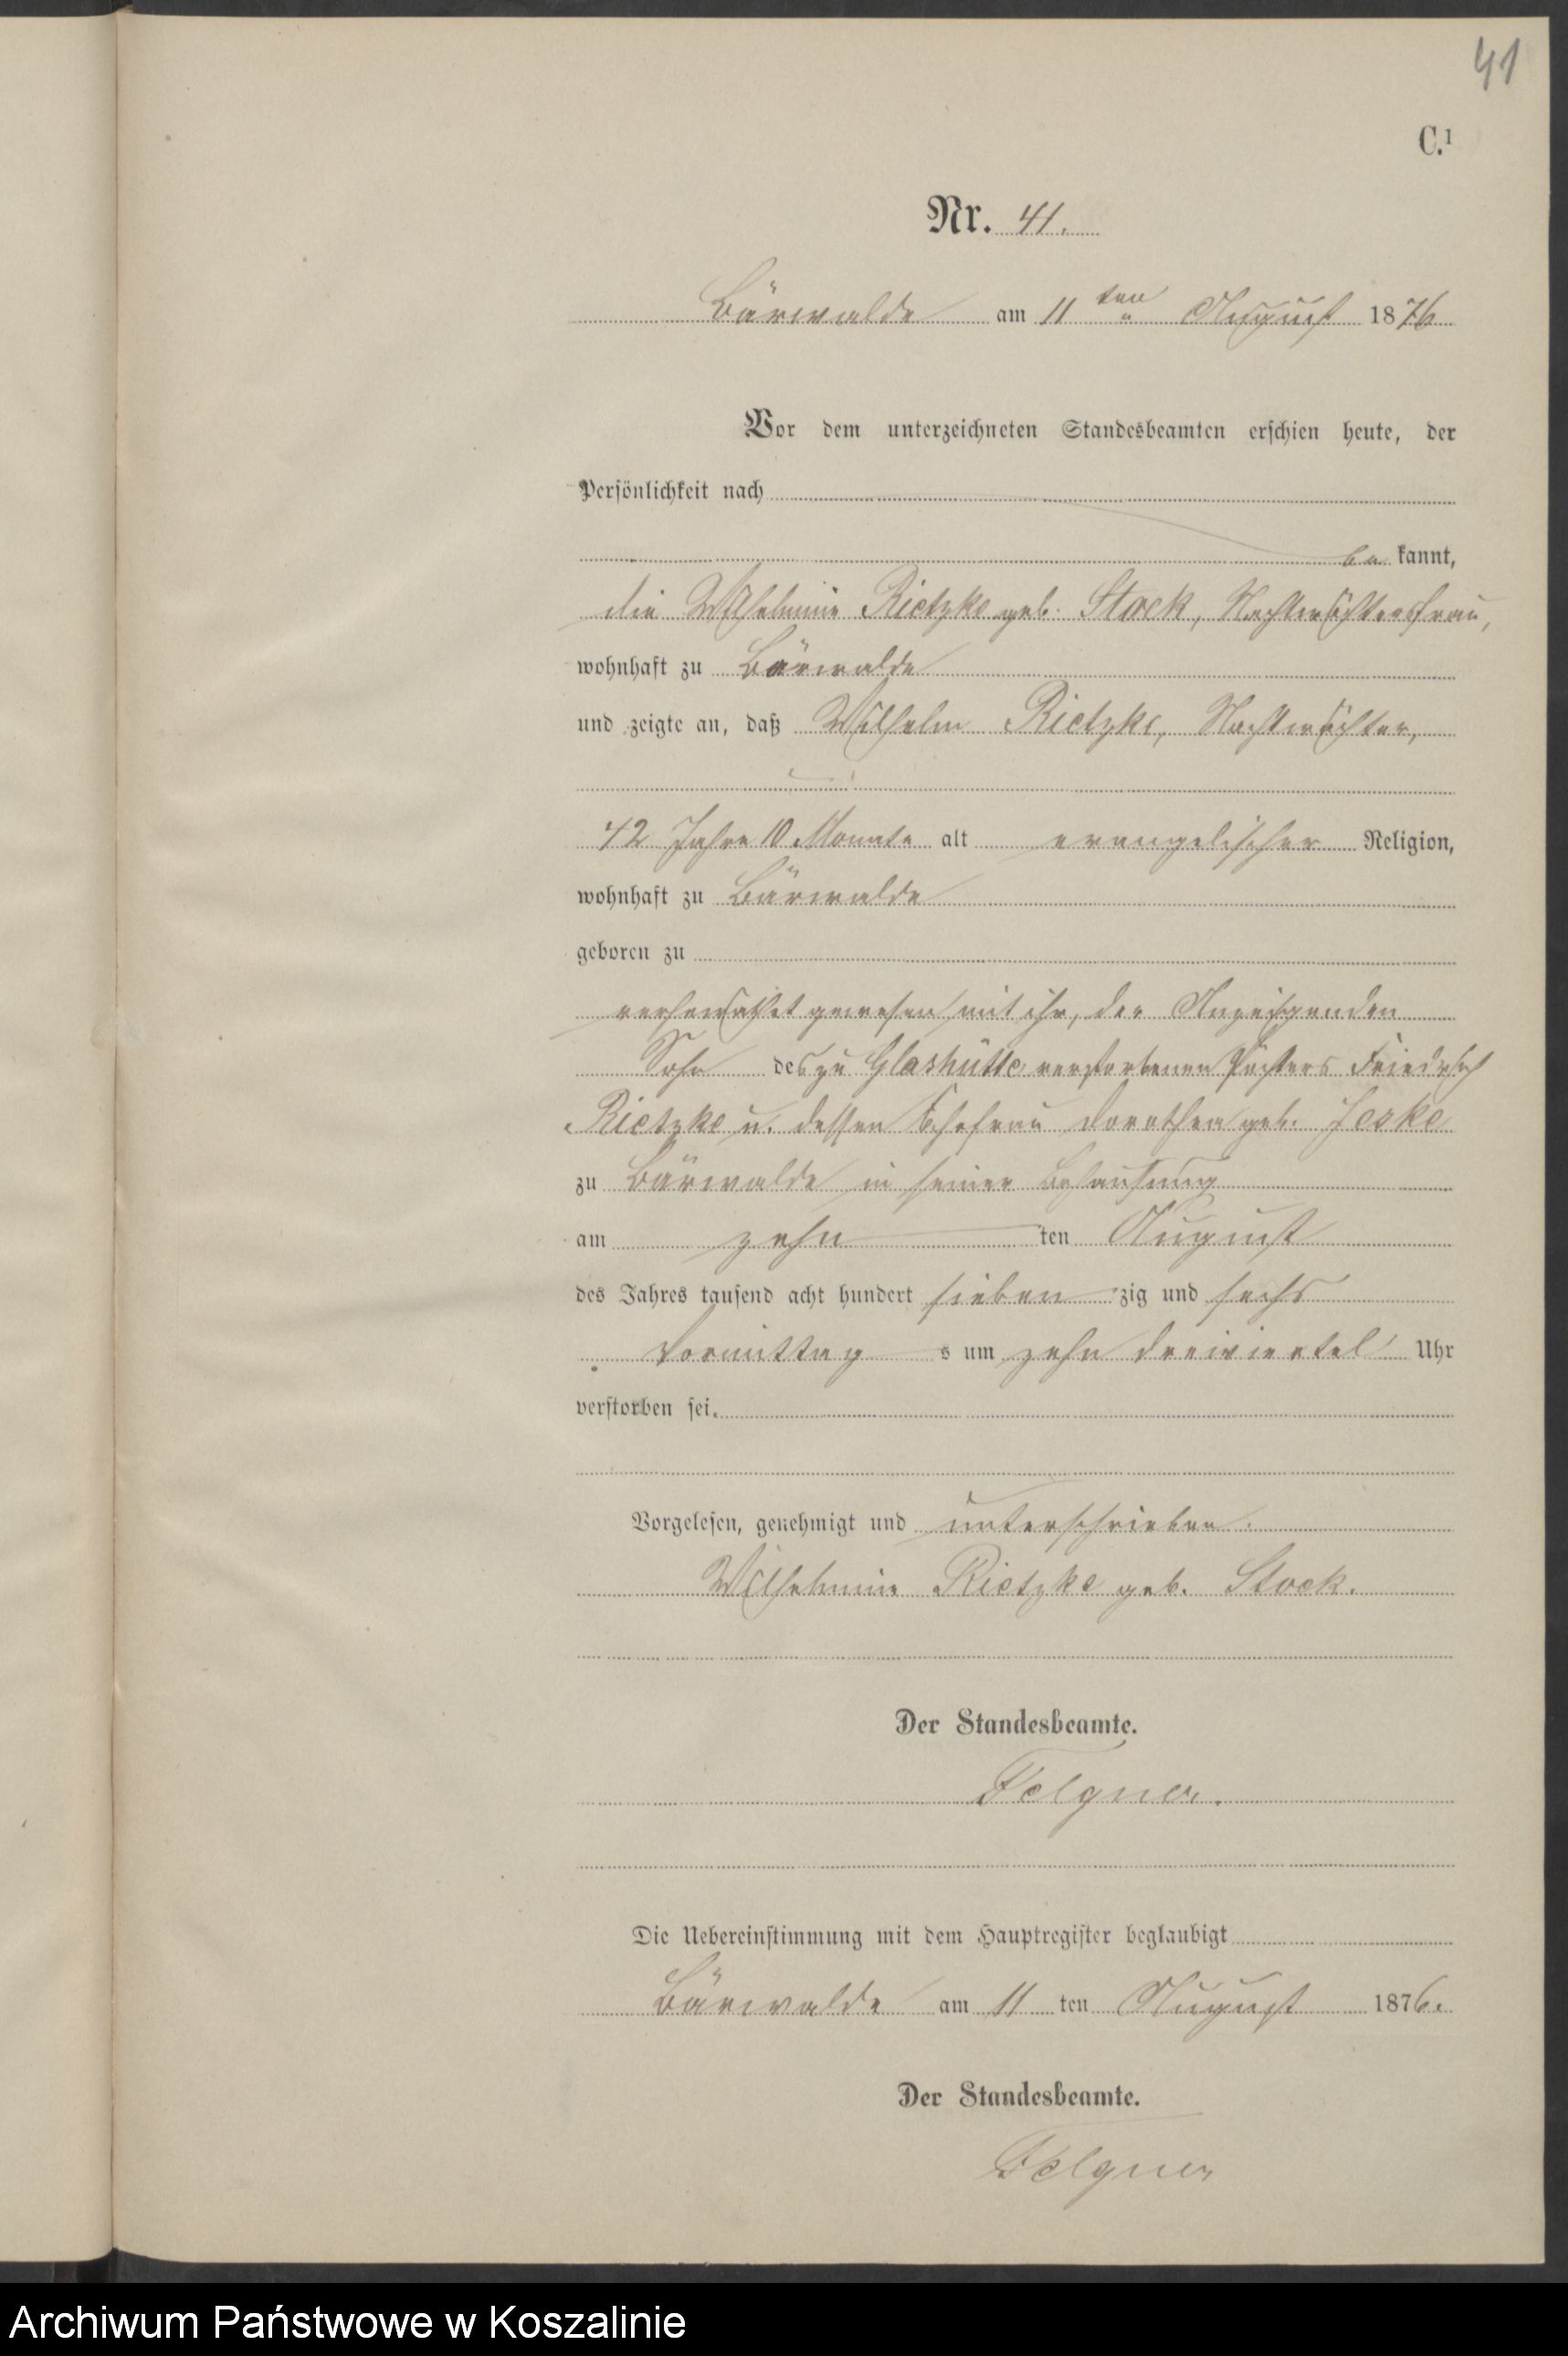 41
C.¹
Nr. 41.
Bärwalde am 11 ten August 1876
Vor dem unterzeichneten Standesbeamten erschien heute, der
Persönlichkeit nach
be kannt,
die Wilhelmine Rietzke geb. Stock, Nachtwächtersfrau,
wohnhaft zu Bärwalde
und zeigte an, daß Wilhelm Rietzke, Nachtwächter,
42 Jahre 10 Monate alt evangelischer Religion,
wohnhaft zu Bärwalde
geboren zu
verheirathet gewesen mit ihr, der Anzeigenden
Sohn des zu Glashütte verstorbenen Friedrich
Rietzke u. dessen Ehefrau Dorothea geb. Jeske
zu Bärwalde in seiner Behausung
am zehn ten August
des Jahres tausend acht hundert sieben zig und sechs
Vormittag s um zehn dreiviertel Uhr
verstorben sei.
Vorgelesen, genehmigt und unterschrieben.
Wilhelmine Rietzke geb. Stock.
Der Standesbeamte.
Felgner.
Die Uebereinstimmung mit dem Hauptregister beglaubigt
Bärwalde am 11 ten August 1876.
Der Standesbeamte.
Felgner
Archiwum Państwowe w Koszalinie